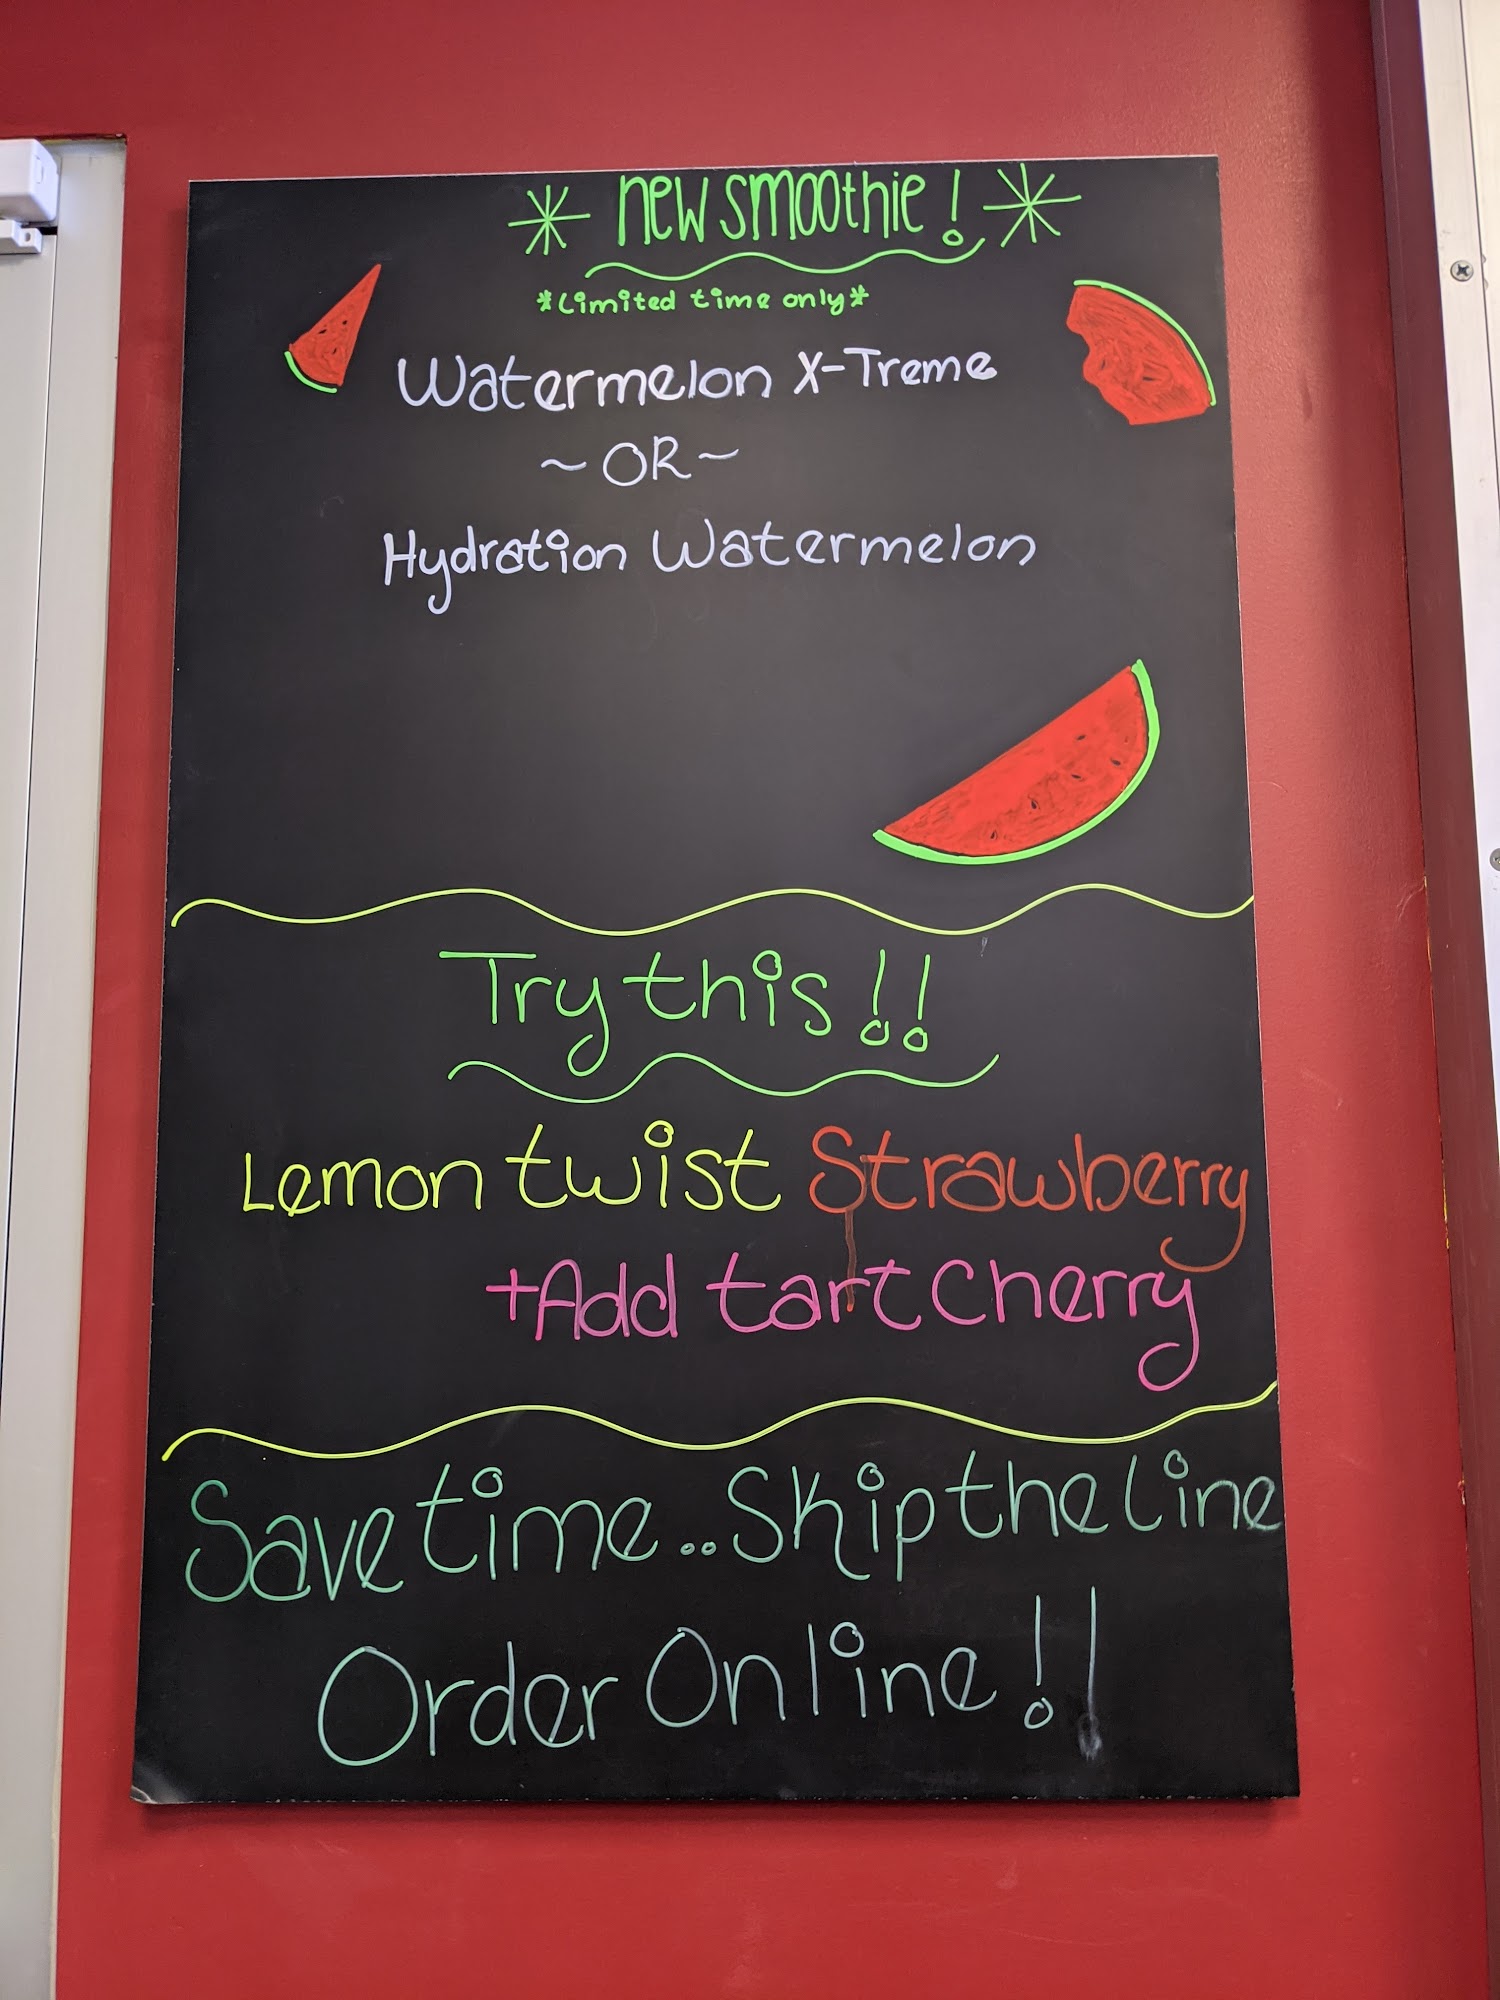 * new smoothie! *
*Limited time only*
Watermelon X-Treme
~ OR ~
Hydration Watermelon
Try this!!
Lemon twist Strawberry
+Add tart Cherry
Save time.. Skip the line
Order Online!!